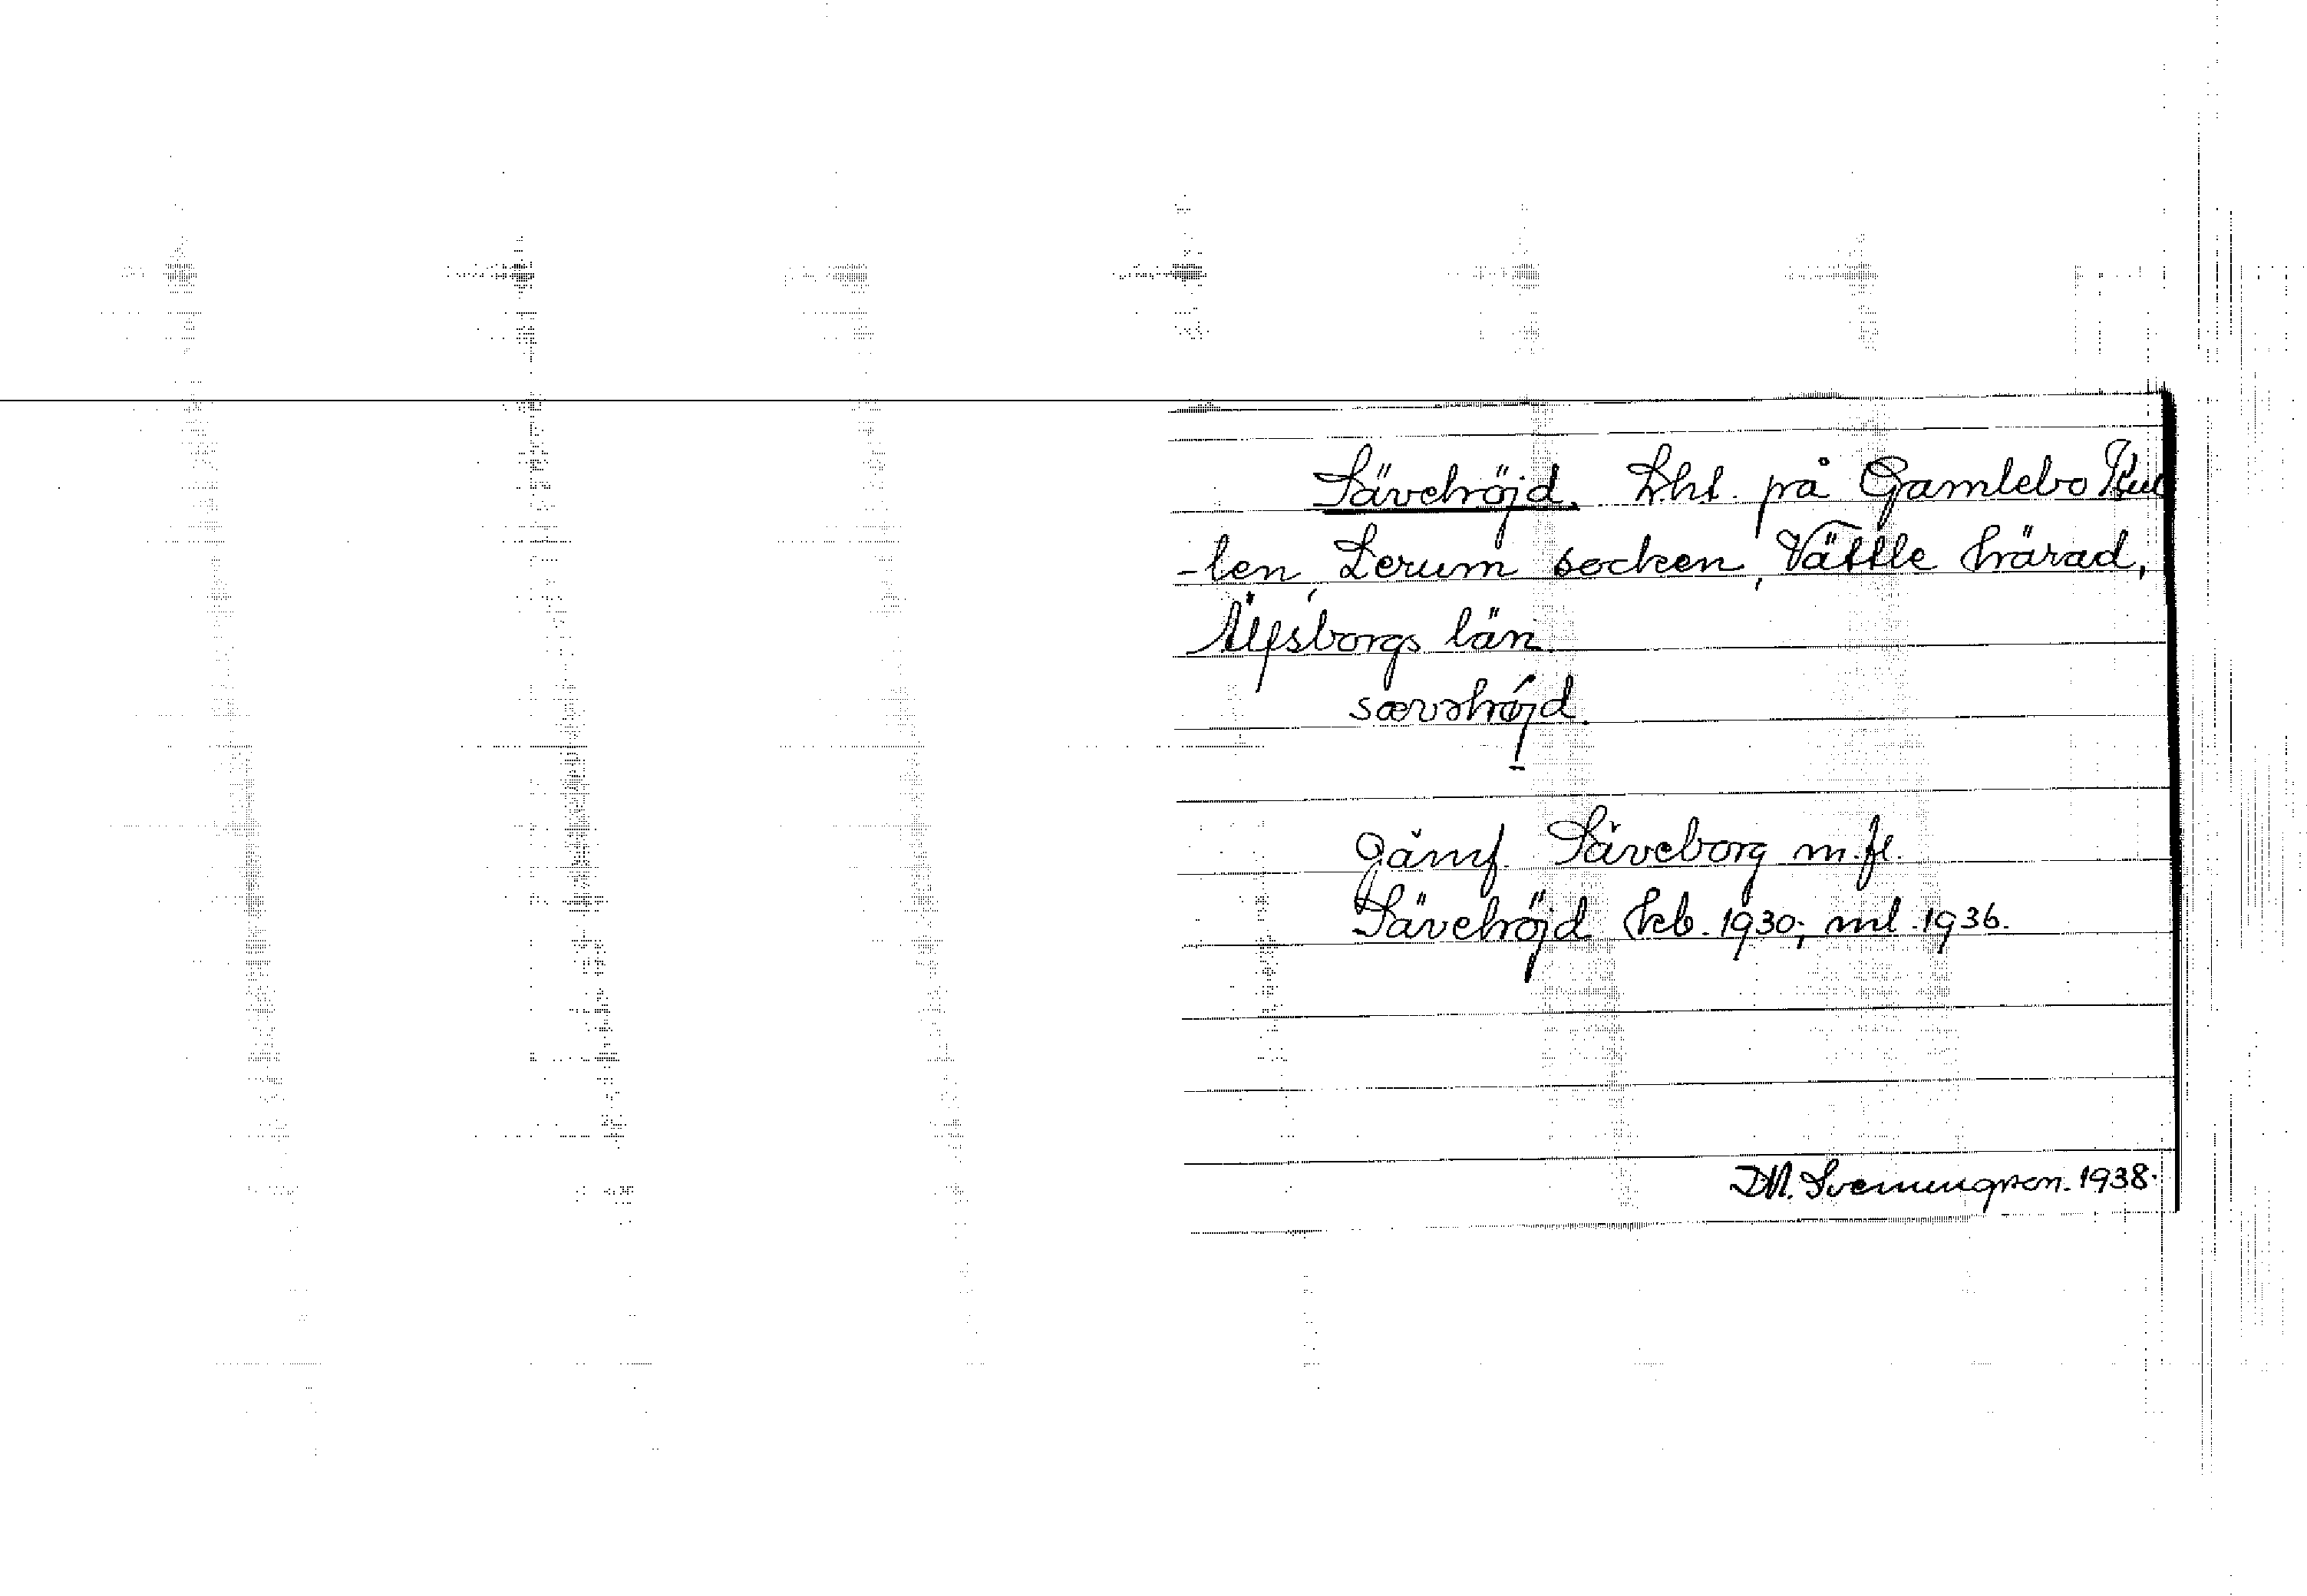 Sävehöjd. Lht. på Gamlebo Kul
-len, Lerum socken, Vättle härad,
Älfsborgs län.
sævəhøjd.
Jämf. Säveborg m.fl.
Sävehöjd kb. 1930; ml. 1936.
D.N. Svenungson. 1938.